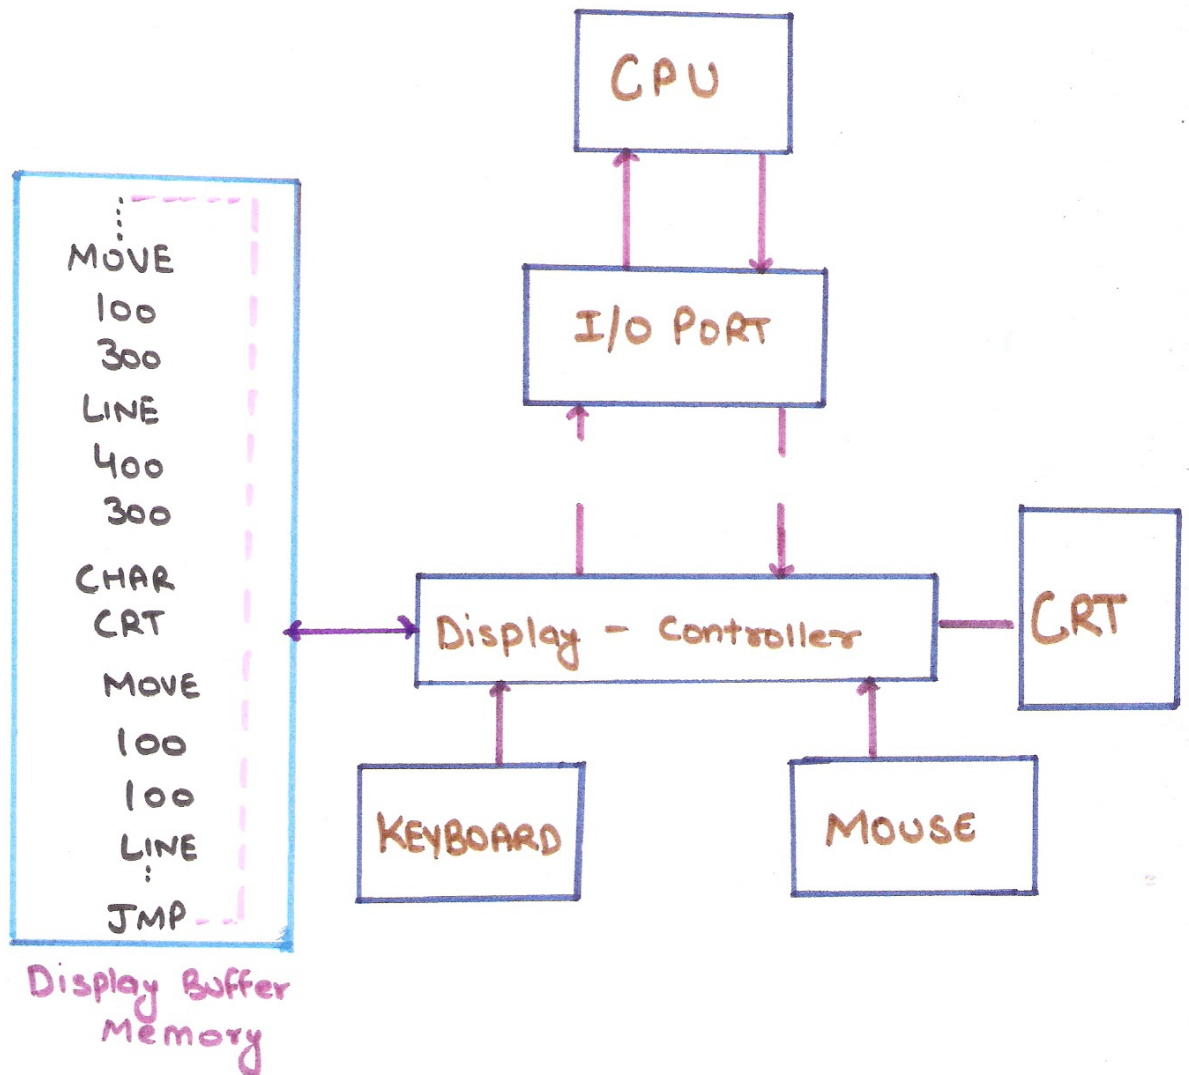 CPU
I/O PORT
MOVE
100
300
LINE
400
300
CHAR
CRT
MOVE
100
100
LINE
JMP
Display Buffer
Memory
Display - Controller
CRT
KEYBOARD
MOUSE